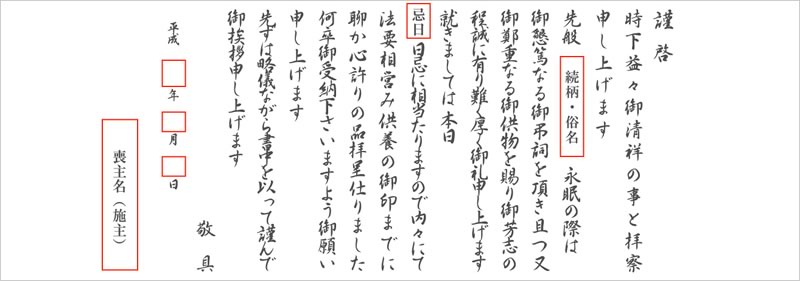 謹啓
時下益々御清祥の事と拝察
申し上げます
先般 続柄・俗名 永眠の際は
御懇篤なる御弔詞を頂き且つ又
御鄭重なる御供物を賜り御芳志の
程誠に有り難く厚く御礼申し上げます
就きましては本日
忌日 日忌に相当たりますので内々にて
法要相営み供養の御印までに
聊か心許りの品拝呈仕りました
何卒御受納下さいますよう御願い
申し上げます
先ずは略儀ながら書中を以って謹んで
御挨拶申し上げます
敬具
平成 年 月 日
喪主名（施主）